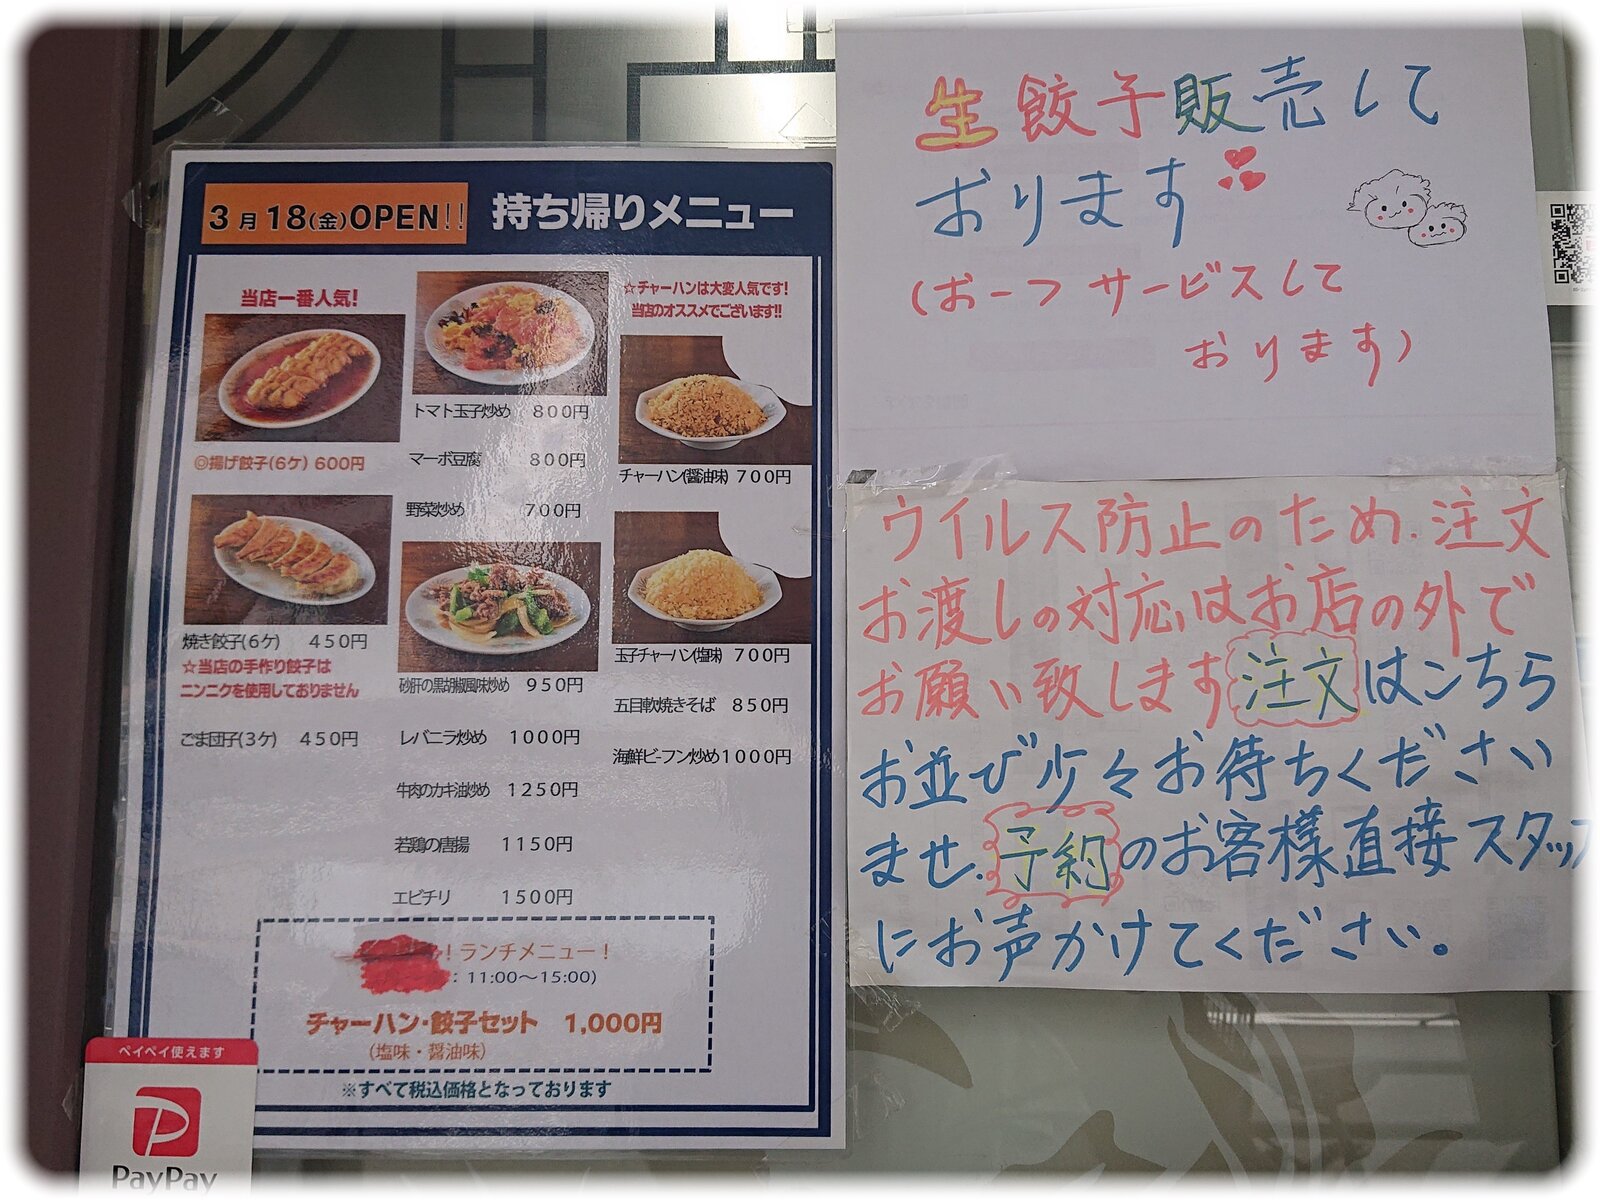 3月18(金)OPEN!!
持ち帰りメニュー
当店一番人気!
◎揚げ餃子(6ケ) 600円
焼き餃子(6ケ) 450円
☆当店の手作り餃子は
ニンニクを使用しておりません
ごま団子(3ケ) 450円
トマト玉子炒め 800円
マーボ豆腐 800円
野菜炒め 700円
砂肝の黒胡椒風味炒め 950円
レバニラ炒め 1000円
牛肉のカキ油炒め 1250円
若鶏の唐揚 1150円
エビチリ 1500円
☆チャーハンは大変人気です!
当店のオススメでございます!!
チャーハン(醤油味) 700円
玉子チャーハン(塩味) 700円
五目軟焼きそば 850円
海鮮ビーフン炒め1000円
!ランチメニュー!
: 11:00〜15:00)
チャーハン・餃子セット 1,000円
(塩味・醤油味)
※すべて税込価格となっております
ペイペイ使えます
PayPay
生餃子販売して
おります
(お一つサービスして
おります)
ウイルス防止のため.注文
お渡しの対応はお店の外で
お願い致します注文はこちら
お並び少々お待ちください
ませ.予約のお客様直接スタッフ
にお声かけてください。